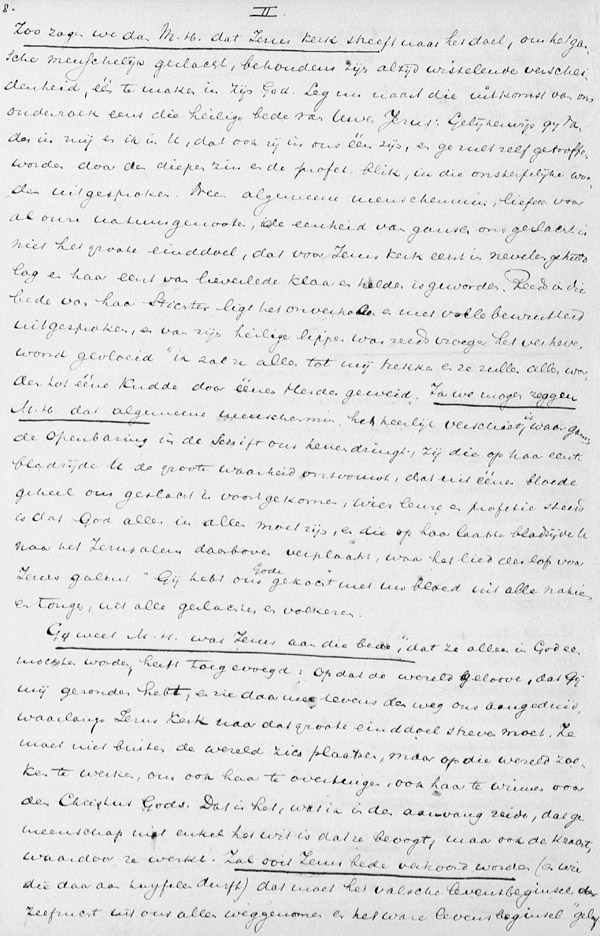 8.
II
Zoo zagen we dan M.H. dat Jezus kerk streeft naar het doel, om het gan-
sche menschelijk geslacht, behoudens zijn altijd wisselende verschei-
denheid, één te maken in zijn God. Leg nu naast die uitkomst van ons
onderzoek eens die heilige bede van Uwen Jezus: Gelijkerwijs gij Va-
der in mij en ik in U, dat ook zij in ons één zijn, en ge zult zelf getroffen
worden door den diepen zin en de profet. blik, in die onsterfelijke woor-
den uitgesproken. Neen algemeene menschenmin, liefde voor
al onze natuurgenooten, de eenheid van gansch ons geslacht is
niet het groote einddoel, dat voor Jezus kerk eerst in nevelen gehuld
lag en haar eerst van lieverlede klaar en helder is geworden. Reeds in die
bede van haar Stichter ligt het onverholen en met volle bewustheid
uitgesproken, en van zijn heilige lippen was reeds vroeger het verheven
woord gevloeid "Ik zal ze allen tot mij trekken en ze zullen allen wor-
den tot ééne kudde door éénen Herder geweid. Ja we mogen zeggen
M.H. dat algemeene menschenmin het heerlijk verschiet is, waar gansch
de Openbaring in de Schrift ons henen dringt, zij die op haar eerste
bladzijde U de groote waarheid ontvouwt, dat uit éénen bloede
geheel ons geslacht is voortgekomen, wier leuze en profetie steeds
is dat God alles in allen moet zijn, en die op haar laatste bladzijde U
naar het Jeruzalem daarboven verplaatst, waar het lied des lofs voor
Jezus galmt "Gij hebt ons Gode gekocht met uw bloed uit alle natiën
en tongen, uit alle geslachten en volkeren.
Gij weet M.H. wat Jezus aan die bede, "dat ze allen in God een
mochten worden, heeft toegevoegd: opdat de wereld geloove, dat Gij
mij gezonden hebt, en zie daarmee tevens den weg ons aangeduid,
waarlangs Jezus kerk naar dat groote einddoel streven moet. Ze
moet niet buiten de wereld zich plaatsen, maar op die wereld zoe-
ken te werken, om ook haar te overtuigen, ook haar te winnen voor
den Christus Gods. Dat is het, wat ik in den aanvang zeide, dat ge-
meenschap niet enkel het wit is dat ze beoogt, maar ook de kracht,
waardoor ze werkt. Zal ooit Jezus bede verhoord worden (en wie
die daaraan twijfelen durft) dan moet het valsche levensbeginsel der
zelfzucht uit ons allen weggenomen en het ware levensbeginsel